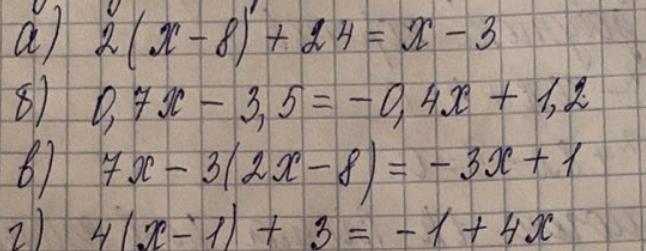 а) 2(x-8)+24=x-3
б) 0,7x-3,5=-0,4x+1,2
в) 7x-3(2x-8)=-3x+1
г) 4(x-1)+3=-1+4x